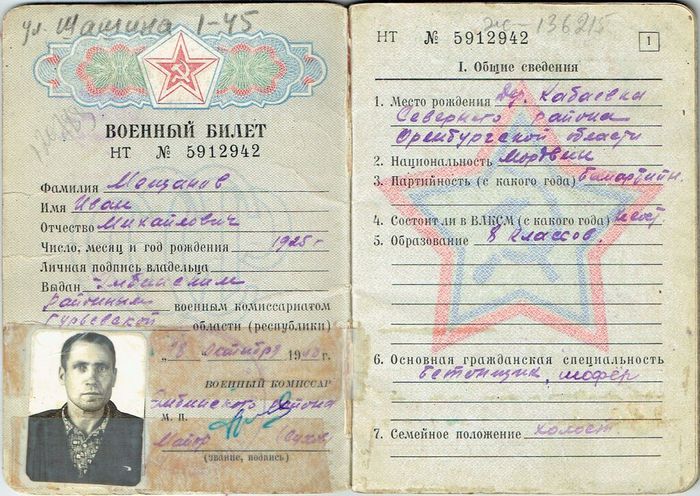 ул. Шашина 1-45
ВОЕННЫЙ БИЛЕТ
НТ № 5912942
Фамилия Мещанов
Имя Иван
Отчество Михайлович
Число, месяц и год рождения 1925 г
Личная подпись владельца
Выдан Эмбинским
районным военным комиссариатом
Гурьевской области (республики)
"18" октября 19 г.
ВОЕННЫЙ КОМИССАР
Эмбинского района
м. п.
Майор
(звание, подпись)
НТ № 5912942
1
I. Общие сведения
1. Место рождения Дер. Кабаевка
Северного района
Оренбургской области
2. Национальность Мордвин
3. Партийность (с какого года)
4. Состоит ли в ВЛКСМ (с какого года)
5. Образование 8 классов.
6. Основная гражданская специальность
бетонщик, шофёр
7. Семейное положение холост.